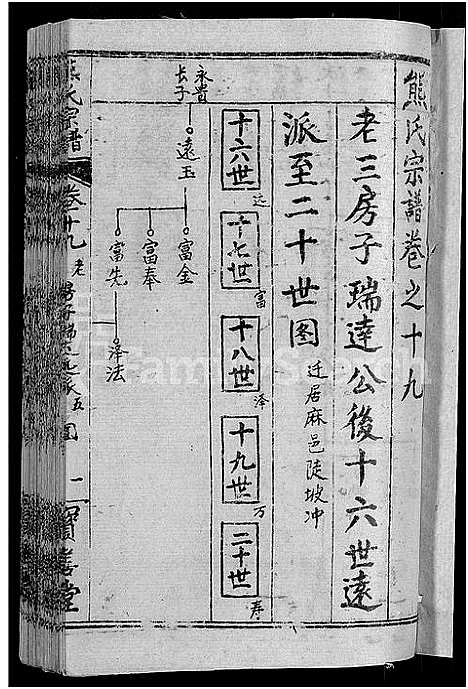 熊氏宗譜卷之十九
老三房子瑞達公後十六世遠
派至二十世图
迁居麻邑陡坡冲
十六世
远
十七世
富
十八世
泽
十九世
万
二十世
寿
永貴
長子
遠玉
富金
富奉
富先
泽法
熊氏宗譜
卷十九
老
五
图
二
寶善堂